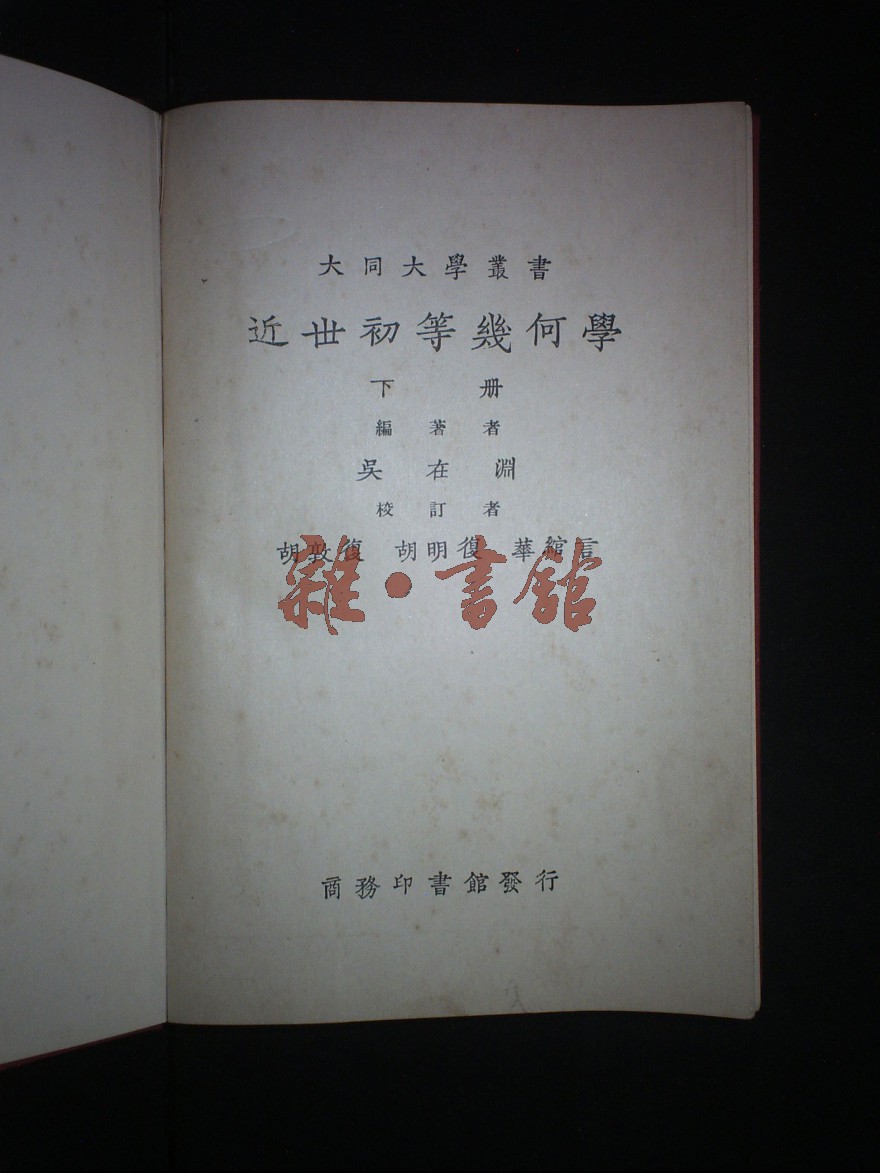 大同大學叢書
近世初等幾何學
下册
編著者
吳在淵
校訂者
胡敦復 胡明復 華綰言
雜·書館
商務印書館發行